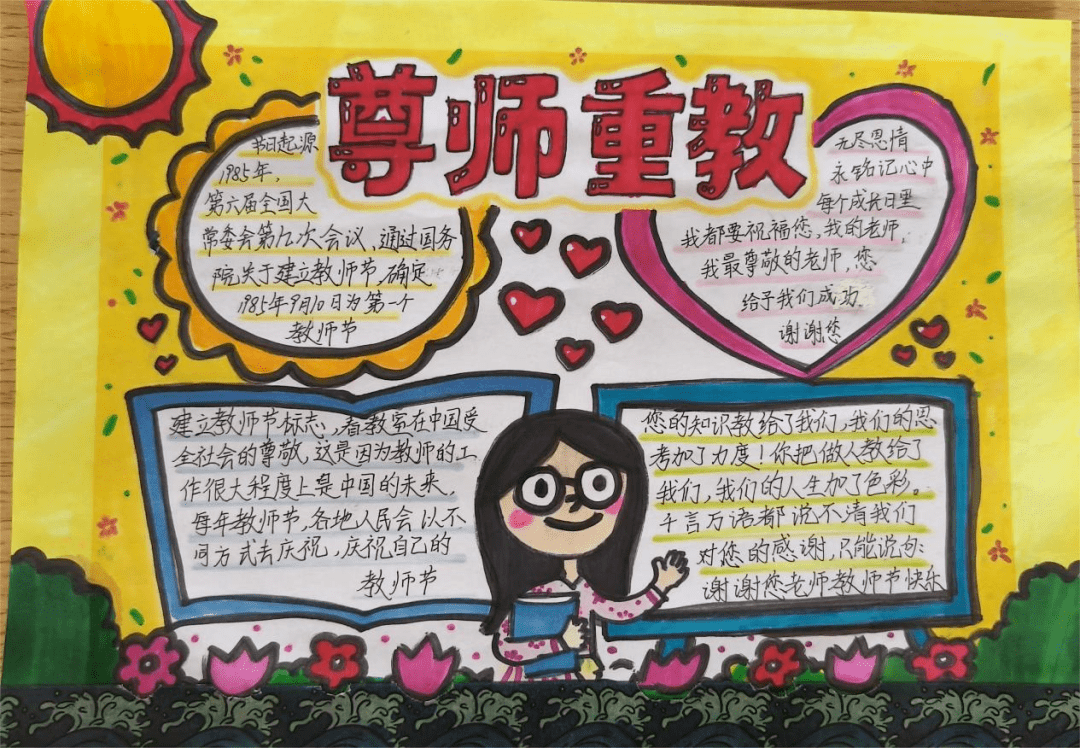 尊师重教
节日起源
1985年,
第六届全国大
常委会第九次会议、通过国务
院关于建立教师节,确定
1985年9月10日为第一个
教师节
无尽恩情
永铭记心中
每个成长日里
我都要祝福您,我的老师,
我最尊敬的老师,您
给予我们成功
谢谢您
建立教师节标志,着教室在中国受
全社会的尊敬,这是因为教师的工
作很大程度上是中国的未来,
每年教师节,各地人民会以不
同方式去庆祝,庆祝自己的
教师节
您的知识教给了我们,我们的思
考加了力度!你把做人教给了
我们,我们的人生加了色彩。
千言万语都说不清我们
对您的感谢,只能说句:
谢谢您老师教师节快乐